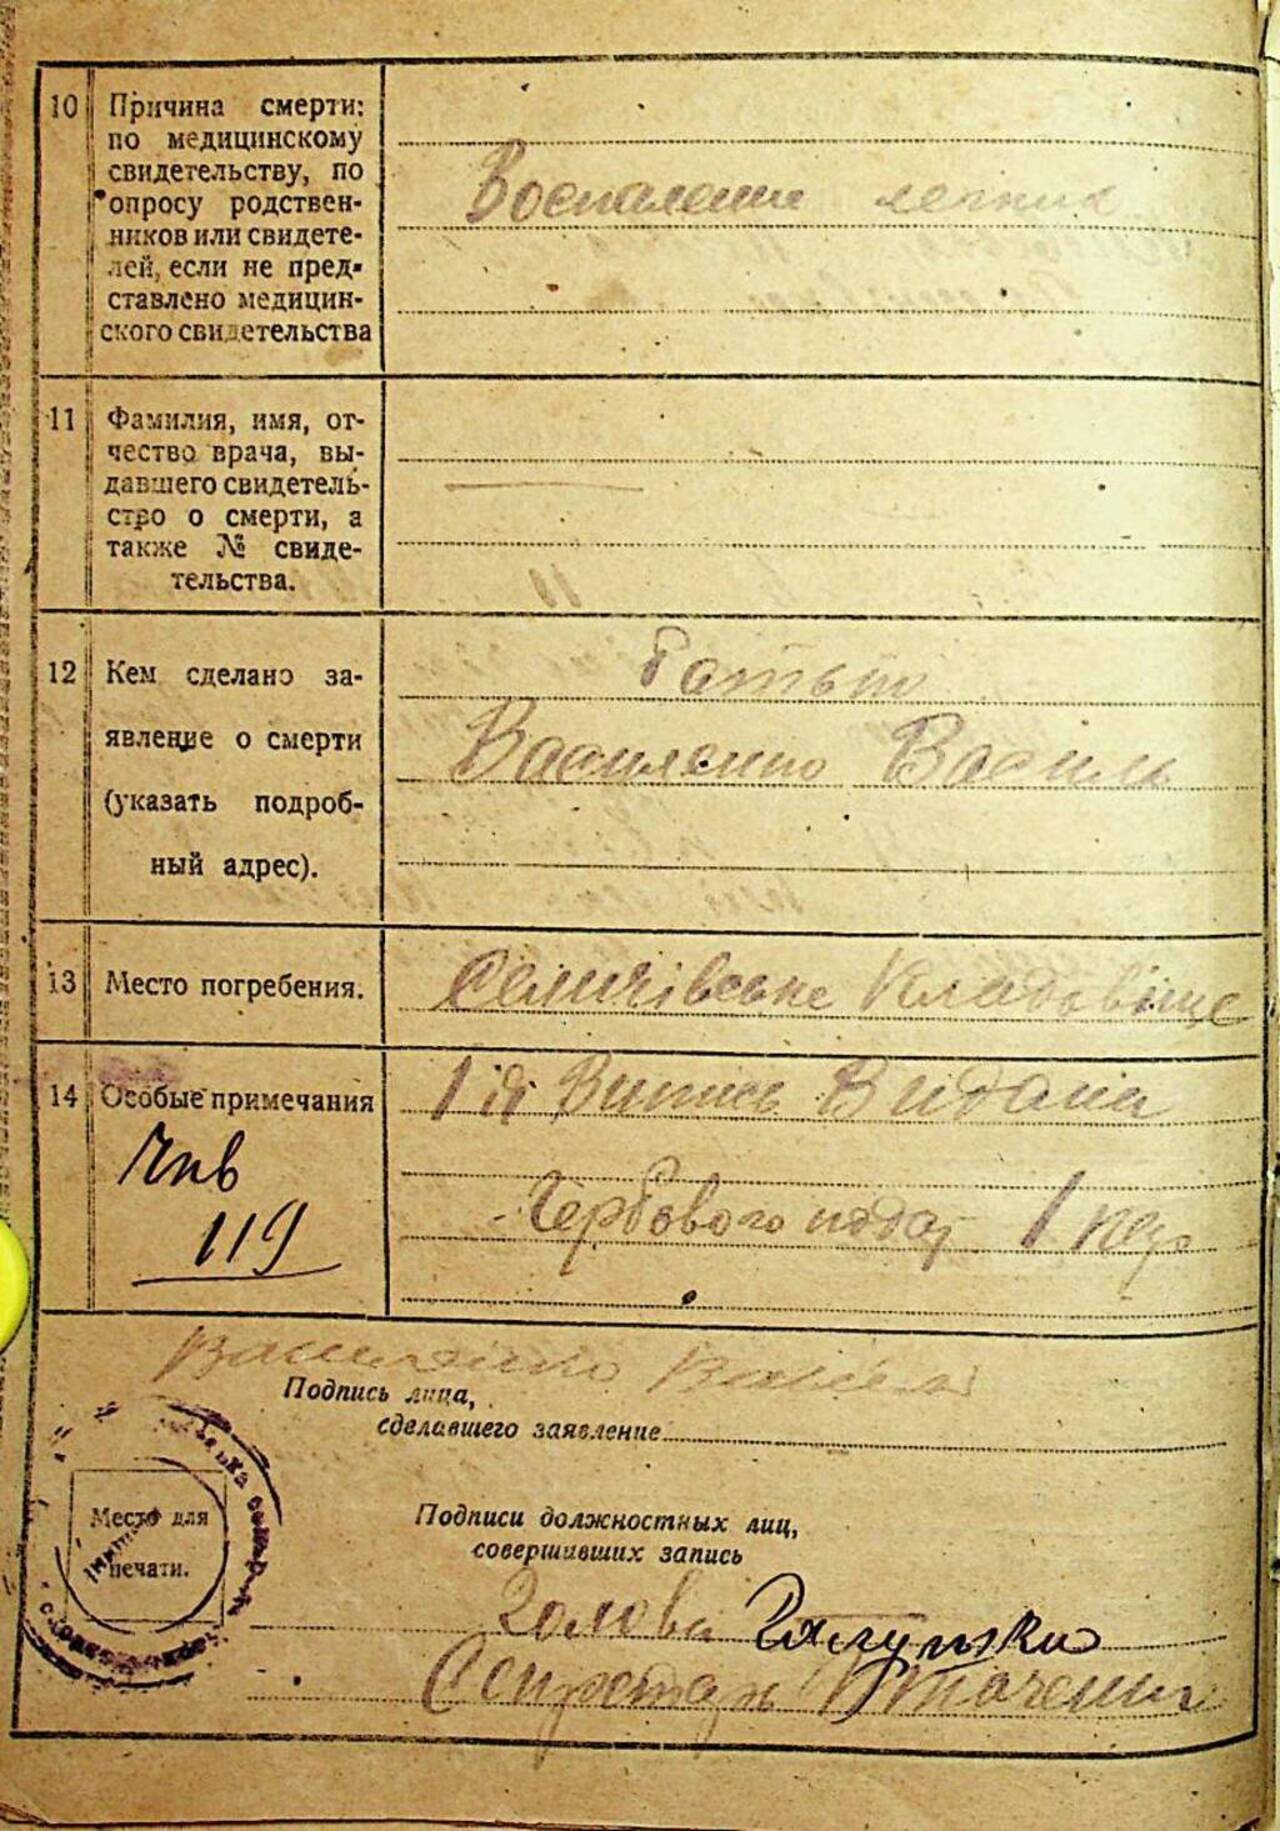 10 Причина смерти:
по медицинскому
свидетельству, по
опросу родствен-
ников или свидете-
лей, если не пред-
ставлено медицин-
ского свидетельства
Воспаление легких
11 Фамилия, имя, от-
чество врача, вы-
давшего свидетель-
ство о смерти, а
также № свиде-
тельства.
12 Кем сделано за-
явление о смерти
(указать подроб-
ный адрес).
Батько
Василенко Василь
13 Место погребения.
Кладовіще
14 Особые примечания
119
Випись Видана
Гербового 1 кар
Василенко
Подпись лица,
сделавшего заявление
Место для
печати.
Подписи должностных лиц,
совершивших запись
Голова
Секретарь